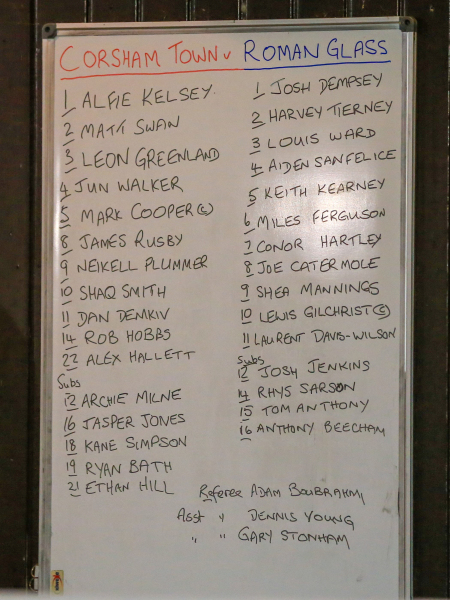 CORSHAM TOWN v ROMAN GLASS
1 ALFIE KELSEY
2 MATT SWAN
3 LEON GREENLAND
4 JUN WALKER
5 MARK COOPER (C)
8 JAMES RUSBY
9 NEIKELL PLUMMER
10 SHAQ SMITH
11 DAN DEMKIV
14 ROB HOBBS
22 ALEX HALLETT
Subs
12 ARCHIE MILNE
16 JASPER JONES
18 KANE SIMPSON
19 RYAN BATH
21 ETHAN HILL
1 JOSH DEMPSEY
2 HARVEY TIERNEY
3 LOUIS WARD
4 AIDEN SANFELICE
5 KEITH KEARNEY
6 MILES FERGUSON
7 CONOR HARTLEY
8 JOE CATERMOLE
9 SHEA MANNINGS
10 LEWIS GILCHRIST (C)
11 LAURENT DAVIS-WILSON
Subs
12 JOSH JENKINS
14 RHYS SARSON
15 TOM ANTHONY
16 ANTHONY BEECHAM
Referee ADAM BOUBRAHMI
Asst " DENNIS YOUNG
" " GARY STONHAM